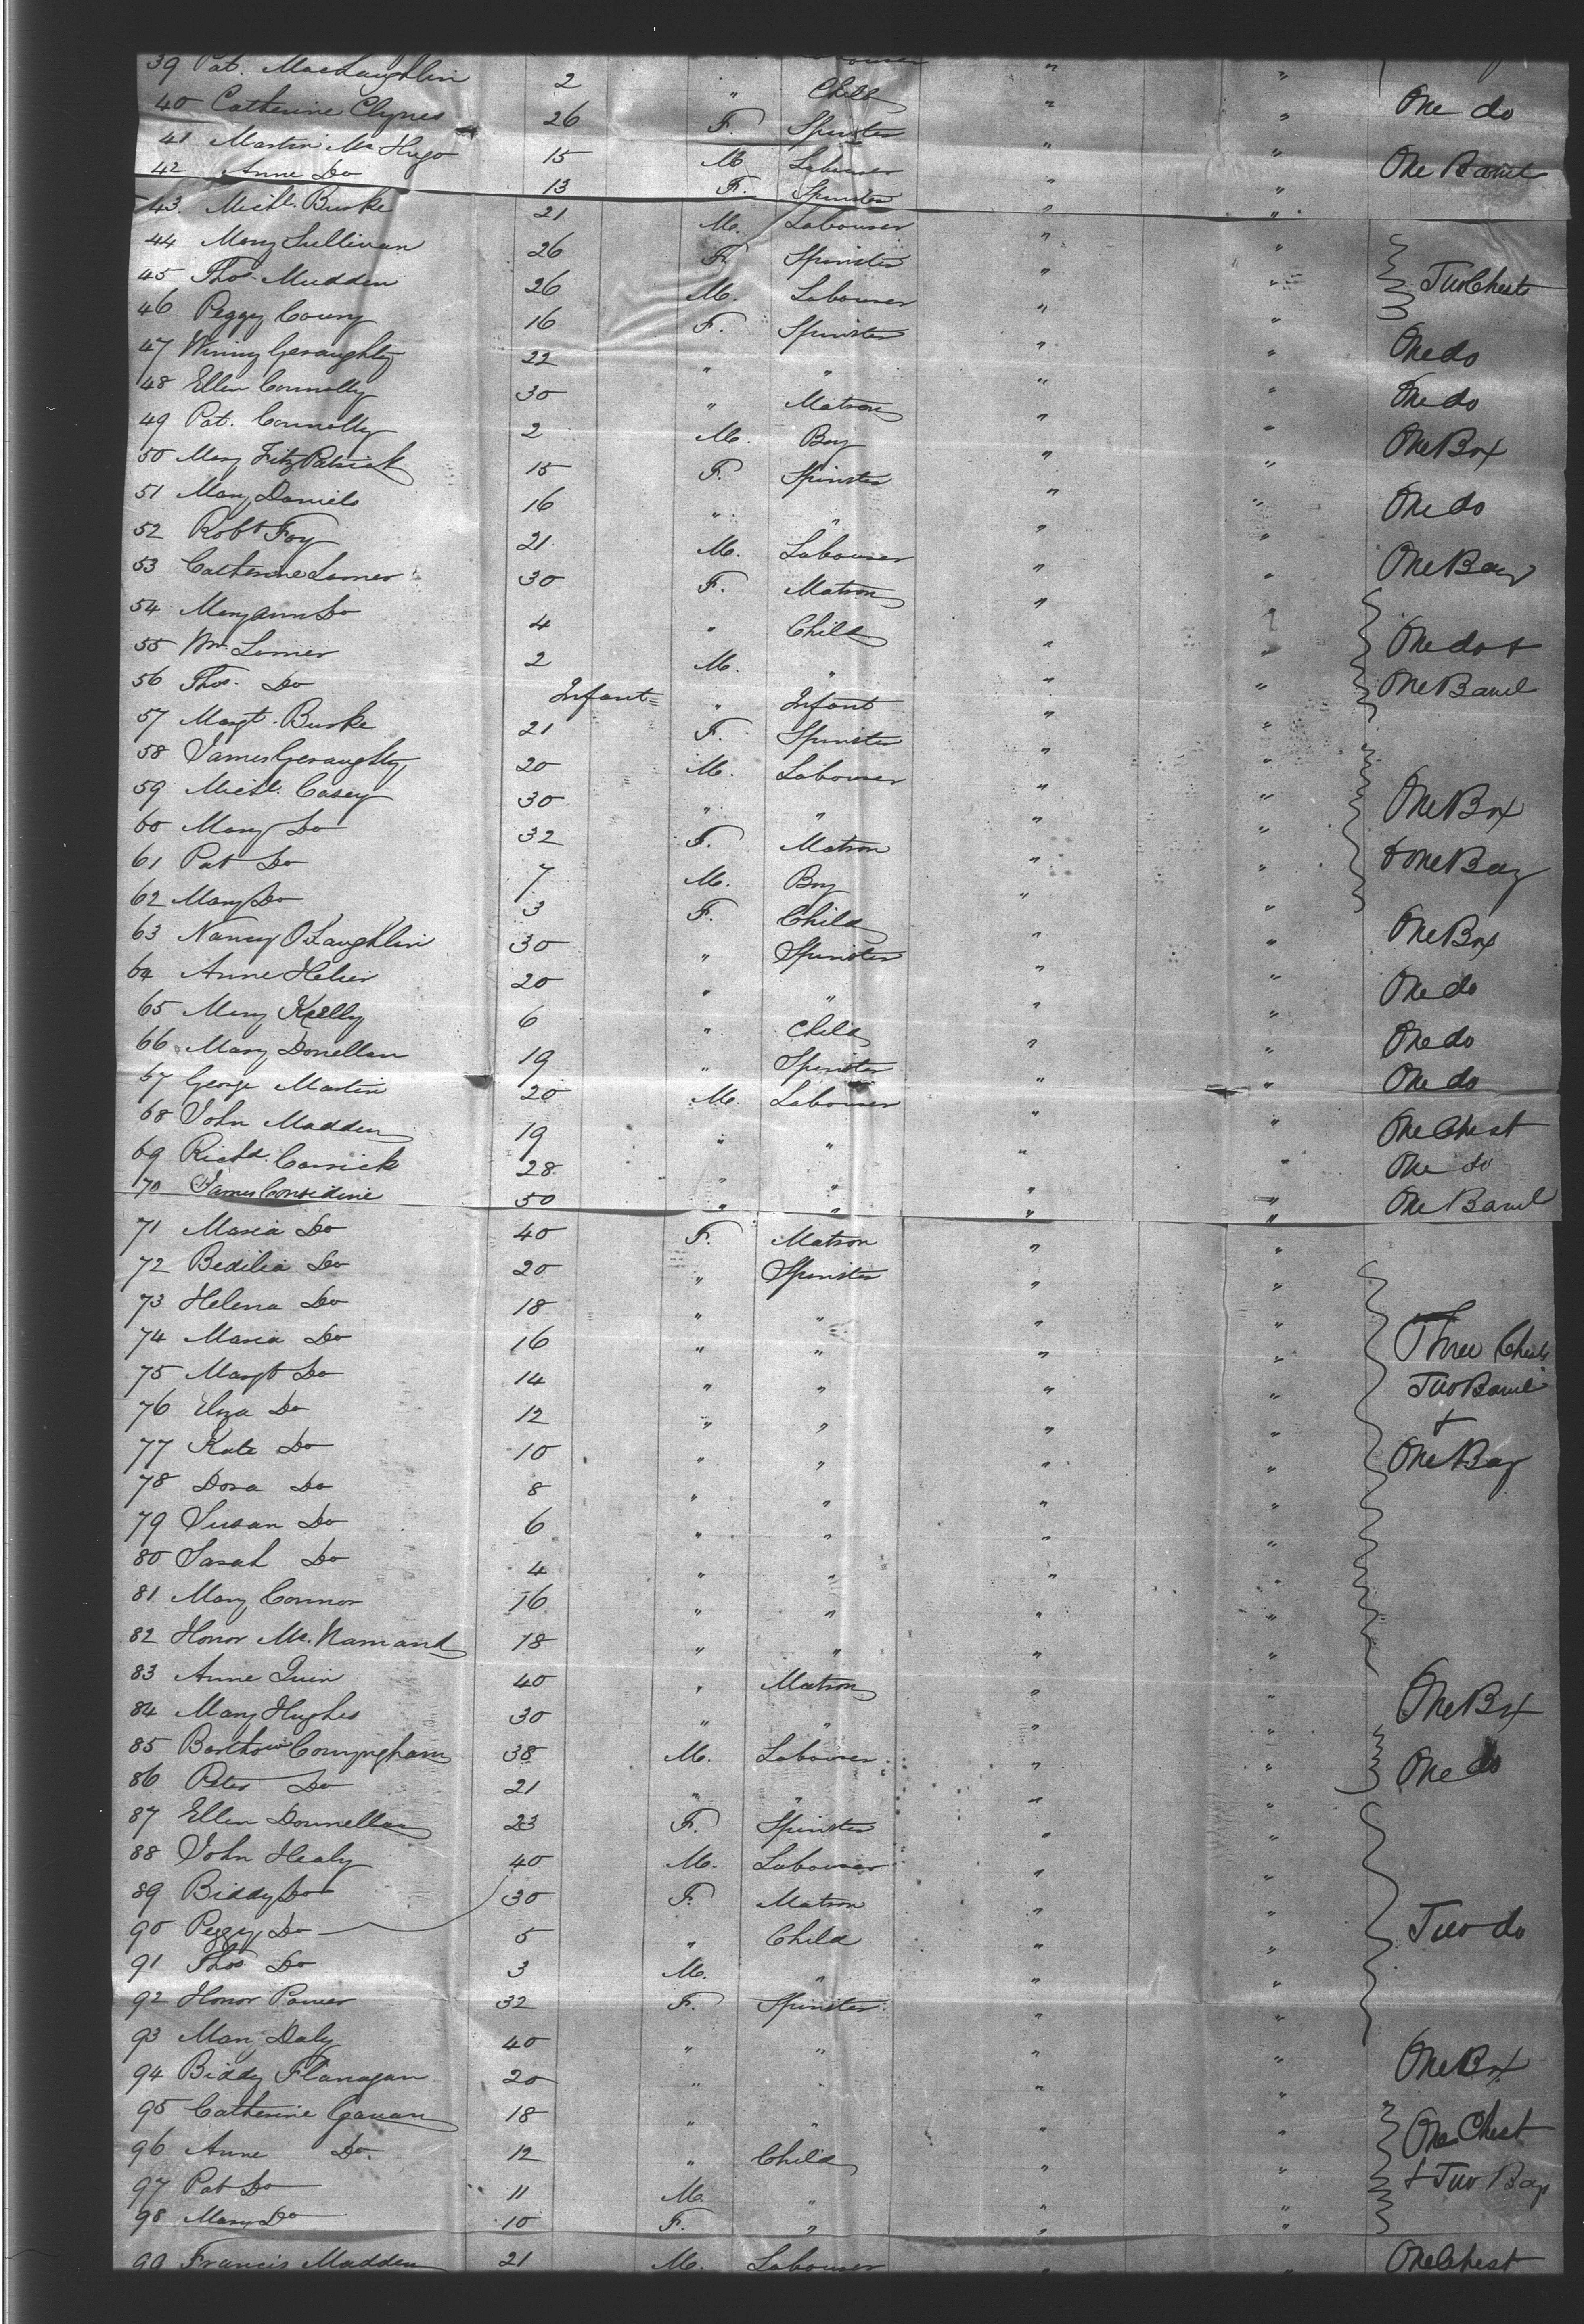 39 Pat. MacLaughlin 2 " Child " "
40 Catherine Clynes 26 F. Spinster " " One do
41 Martin Mc Hugo 15 M Labourer " "
42 Anne Do 13 F. Spinster " " One Barrel
43 Michl. Burke 21 M. Labourer " "
44 Mary Sullivan 26 F. Spinster " "
45 Thos. Mudden 26 M. Labourer " " Two Chests
46 Peggy 16 F. Spinster " "
47 Winny Geraughty 22 " " " " One do
48 Ellen Connolly 30 " Matron " " One do
49 Pat. Connolly 2 M. Boy " " One Box
50 Mary FitzPatrick 15 F. Spinster " "
51 Mary Daniels 16 " " " " One do
52 Robt Foy 21 M. Labourer " "
53 Catherine Larner 30 F. Matron " " One Box
54 Maryann Do 4 " Child " "
55 Wm Larner 2 M. " " " One do &
56 Thos. Do Infant " Infant " " One Barrel
57 Margt. Burke 21 F. Spinster " "
58 James Geraughty 20 M. Labourer " "
59 Michl. Casey 30 " " " " One Box
60 Mary Do 32 F. Matron " "
61 Pat Do 7 M. Boy " " & One Bag
62 Mary Do 3 F. Child " "
63 Nancy O'Laughlin 30 " Spinster " " One Box
64 Anne 20 " " " " One do
65 Mary Kelly 6 " Child " " One do
66 Mary Donellan 19 " Spinster " " One do
67 George Martin 20 M. Labourer " "
68 John Madden 19 " " " " One Chest
69 Richd. Carrick 28 " " " " One do
70 James Considine 50 " " " " One Barrel
71 Maria Do 40 F. Matron " "
72 Bedilia Do 20 " Spinster " "
73 Helena Do 18 " " " "
74 Maria Do 16 " " " " Three Chests
75 Margt Do 14 " " " " Two Barrel
76 Eliza Do 12 " " " " &
77 Kate Do 10 " " " " One Bag
78 Dora Do 8 " " " "
79 Susan Do 6 " " " "
80 Sarah Do 4 " " " "
81 Mary Connor 16 " " " "
82 Honor Mc.Namara 18 " " " "
83 Anne Quin 40 " Matron " "
84 Mary Hughes 30 " " " " One Box
85 Barthow Conyngham 38 M. Labourer " "
86 Peter Do 21 " " " " One do
87 Ellen Donnellan 23 F. Spinster " "
88 John Healy 40 M. Labourer " "
89 Biddy Do 30 F. Matron " "
90 Peggy Do 5 " Child " " Two do
91 Thos. Do 3 M. " " "
92 Honor Power 32 F. Spinster " "
93 Mary Daly 40 " " " "
94 Biddy Flanagan 20 " " " " One Box
95 Catherine Gavan 18 " " " "
96 Anne Do. 12 " Child " " One Chest
97 Pat Do 11 M. " " " & Two Bags
98 Mary Do 10 F. " " "
99 Francis Madden 21 M. Labourer " " One Chest